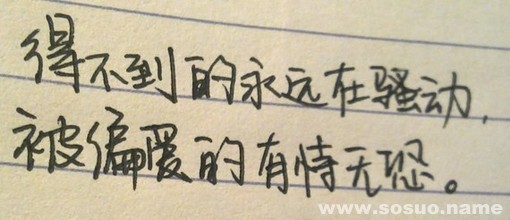 得不到的永远在骚动,
被偏爱的有恃无恐。
www.sosuo.name